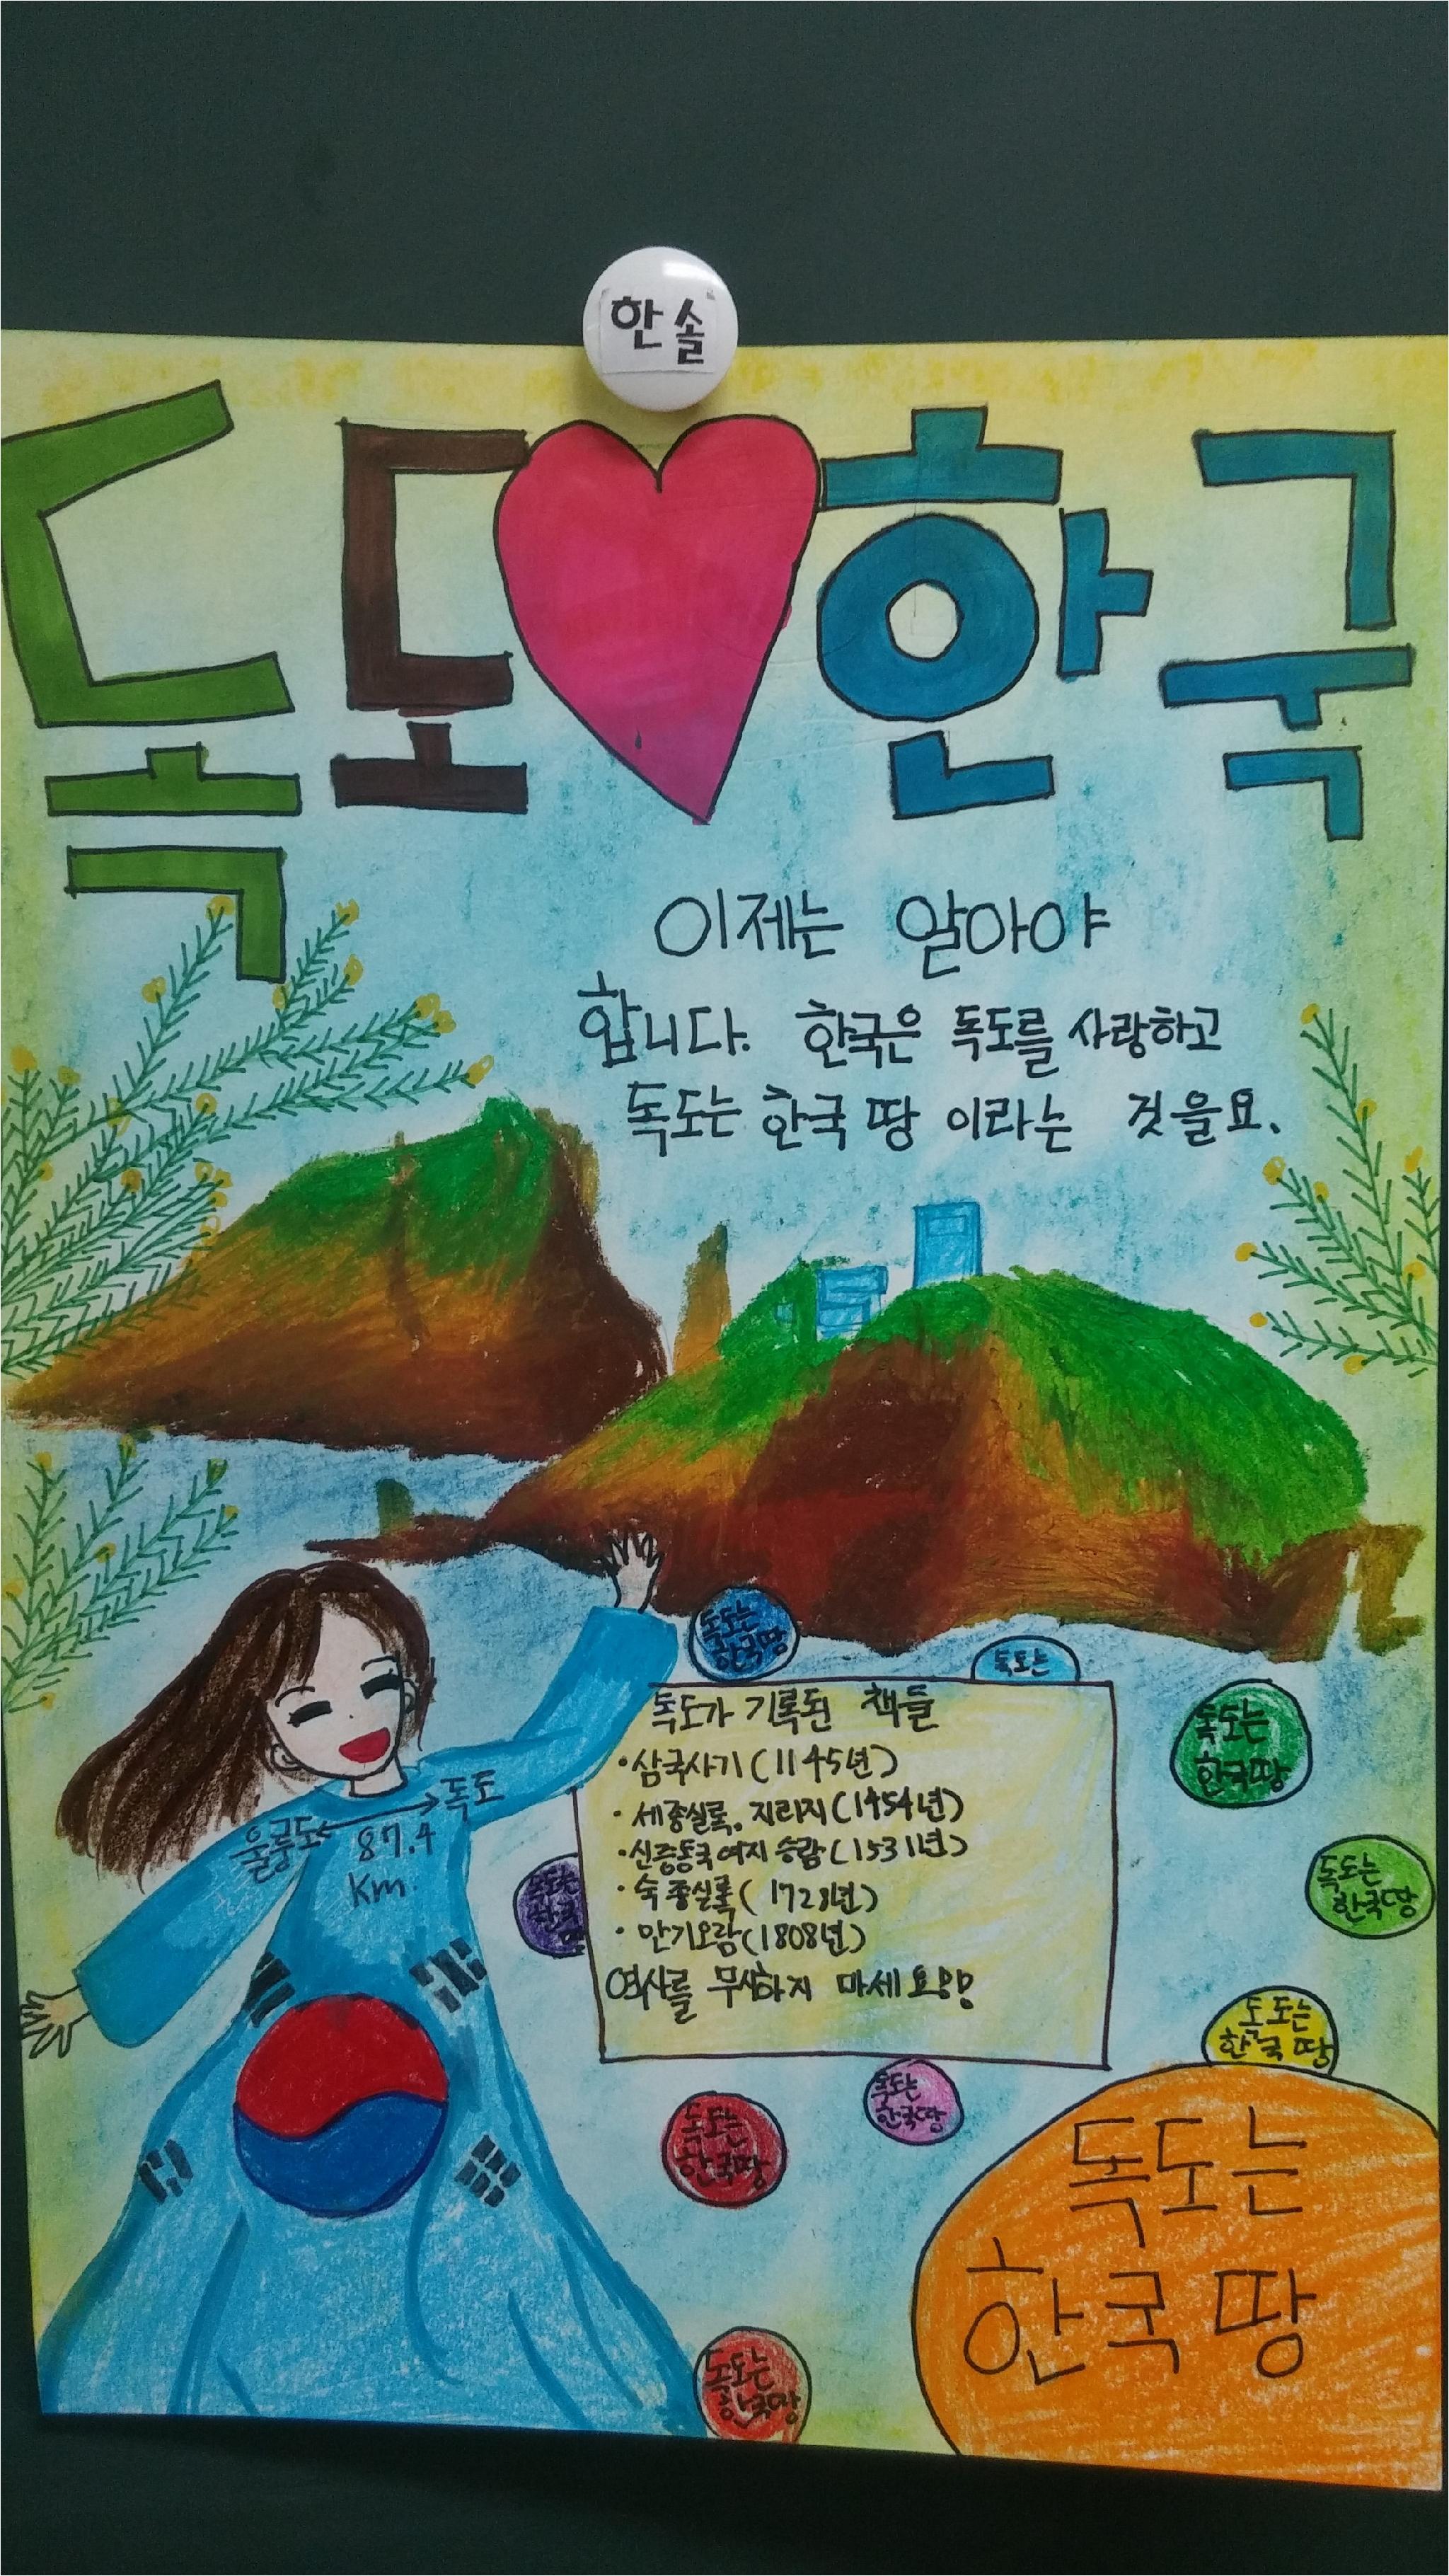 한솔
독도 한국
이제는 알아야
합니다. 한국은 독도를 사랑하고
독도는 한국 땅 이라는 것을요.
독도는
한국땅
독도는
독도가 기록된 책들
·삼국사기(1145년)
·세종실록, 지리지(1454년)
·신증동국여지 승람(1531년)
·숙종실록(1728년)
·만기요람(1808년)
역사를 무시하지 마세요!?!
독도는
한국땅
독도는
한국땅
울릉도 ↔ 독도
87.4
Km.
독도는
한국
땅
독도는
한국 땅
독도는
한국땅
독도는
한국땅
독도는
한국 땅
독도는
한국땅